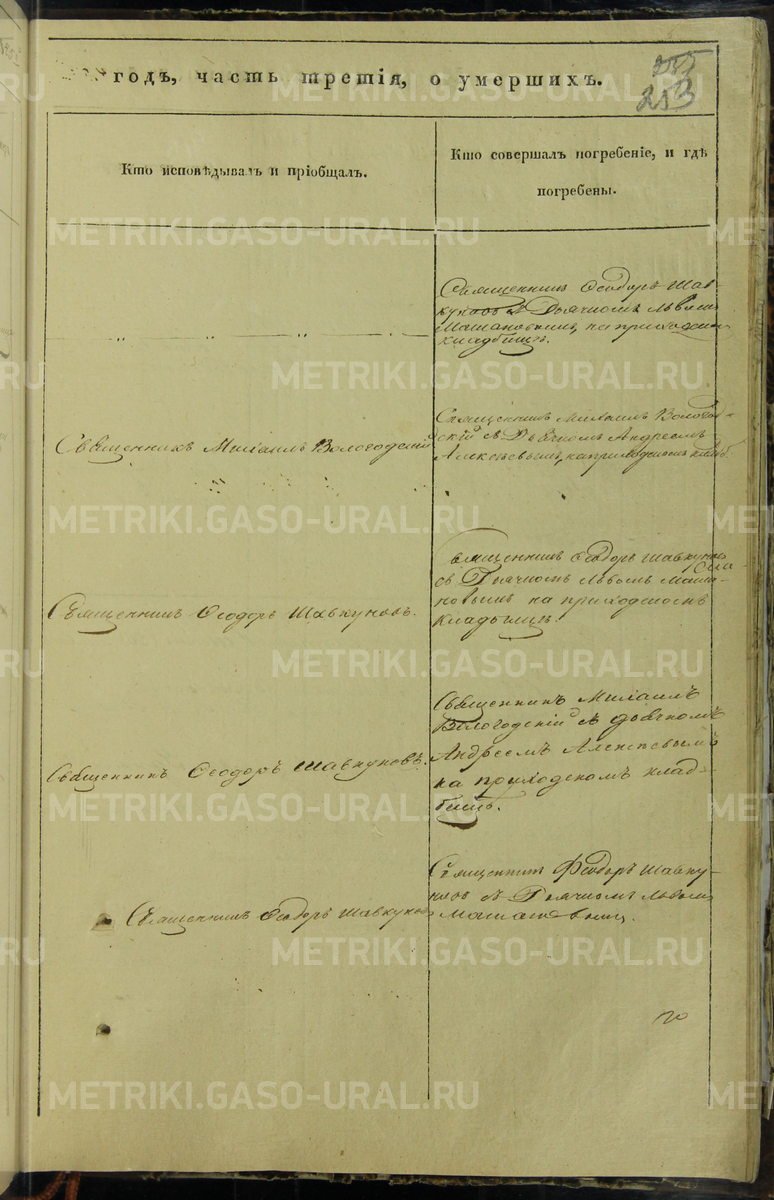 годъ, часть третія, о умершихъ.
253
Кто исповѣдывалъ и пріобщалъ.
Кто совершалъ погребеніе, и гдѣ
погребены.
Священникъ Ѳеодоръ Шав-
куновъ съ Дьячкомъ Львомъ
на приходскомъ
кладбищѣ.
Священникъ Михаилъ Вологодскій
Священникъ Михаилъ Волого-
дскій съ Дьячкомъ Андреемъ
Алексѣевымъ, на приходскомъ кладб
Священникъ Ѳеодоръ Шавкуновъ.
Священникъ Ѳеодоръ Шавкуновъ
съ Дьячкомъ Львомъ
на приходскомъ
кладбищѣ.
Священникъ Ѳеодоръ Шавкуновъ.
Священникъ Михаилъ
Вологодскій съ дьячкомъ
Андреемъ Алексеевымъ
на приходскомъ клад-
бищѣ.
Священникъ Ѳеодоръ Шавкуновъ
Священникъ Феодоръ Шавку-
новъ съ Дьячкомъ Львомъ
METRIKI.GASO-URAL.RU